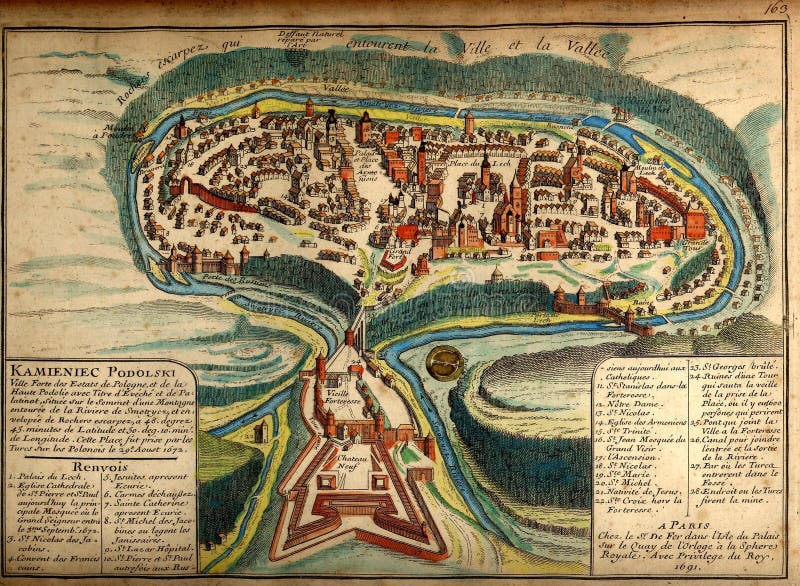 163
Deffaut Naturel
reparé par
l'Art
Rochers escarpez qui entourent la Ville et la Vallée
Vallée
Palais
et Place
des
Arme
niens
Place du Lech
Moulin de
Lech
Grand
Fort
Grande
Tour
Bain
Vieille
Forteresse
24
Chateau
Neuf
KAMIENIEC PODOLSKI
Ville Forte des Estats de Pologne, et de la
Haute Podolie avec Titre d'Eveché et de Pa-
latinat, Située sur le Sommet d'une Montagne
entourée de la Riviere de Smotrycz, et en-
velopée de Rochers escarpez, a 48. degrez
43. minutes de Latitude et 50. deg. 10. min.
de Longitude. Cette Place fut prise par les
Turcs sur les Polonois le 29. Aoust 1672.
Renvois
1. Palais du Lech.
2. Eglise Cathedrale
de St. Pierre et St. Paul
aujourd'huy la prin-
cipale Mosquée où le
Grand Seigneur entra
le Septemb. 1672.
3. St. Nicolas des Ja-
cobins.
4. Convent des Francis
cains.
5. Jesuites apresent
Ecurie.
6. Carmes dechaussez.
7. Sainte Catherine
apresent Ecurie.
8. St. Michel des Jaco-
bins ou logent les
Janissaires.
9. St. Lazar Hôpital.
10. St. Pierre et St. Paul
autrefois aux Rus-
siens aujourd'hui aux
Catholiques.
11. St. Stanislas dans la
Forteresse.
12. Nôtre Dame.
13. St. Nicolas.
14. Eglise des Armeniens
15. Ste. Trinité.
16. St. Jean Mosquée du
Grand Visir.
17. l'Ascension.
18. St. Nicolas.
19. Ste. Marie.
20. St. Michel.
21. Nativité de Jesus.
22. Ste. Croix hors la
Forteresse.
23. St. Georges brûlé.
24. Ruines d'une Tour
qui sauta la veille
de la prise de la
Place, où il y eut
personnes qui perirent
25. Pont qui joint la
Ville a la Forteresse
26. Canal pour joindre
l'entrée et la Sortie
de la Riviere.
27. Par où les Turcs
entrerent dans le
Fossé.
28. Endroit ou les Turcs
firent la mine.
A PARIS
Chez le Sr. De Fer dans l'Isle du Palais
sur le Quay de l'Orloge à la Sphere
Royale. Avec Privilege du Roy.
1691.